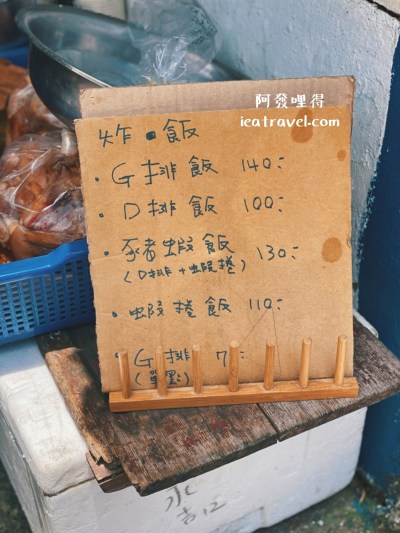 阿發哩得
ieatravel.com/
炸•飯
•G排飯 140:
•D排飯 100:
•豬蝦飯 130:
(D排+蝦捲)
•蝦捲飯 110:
•G排
(單點)
水